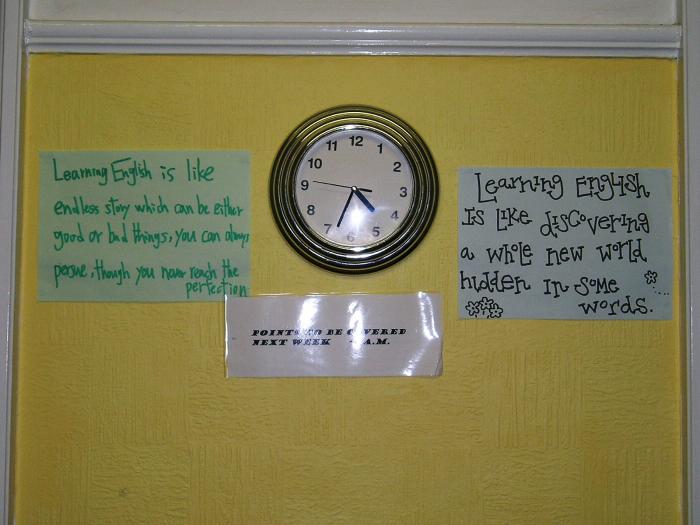 Learning English is like
endless story which can be either
good or bad things, you can always
persue, though you never reach the
perfection
12
1
2
3
4
5
6
7
8
9
10
11
POINTS TO BE COVERED
NEXT WEEK - A.M.
Learning English
Is like discovering
a whole new world
hidden in some
words.